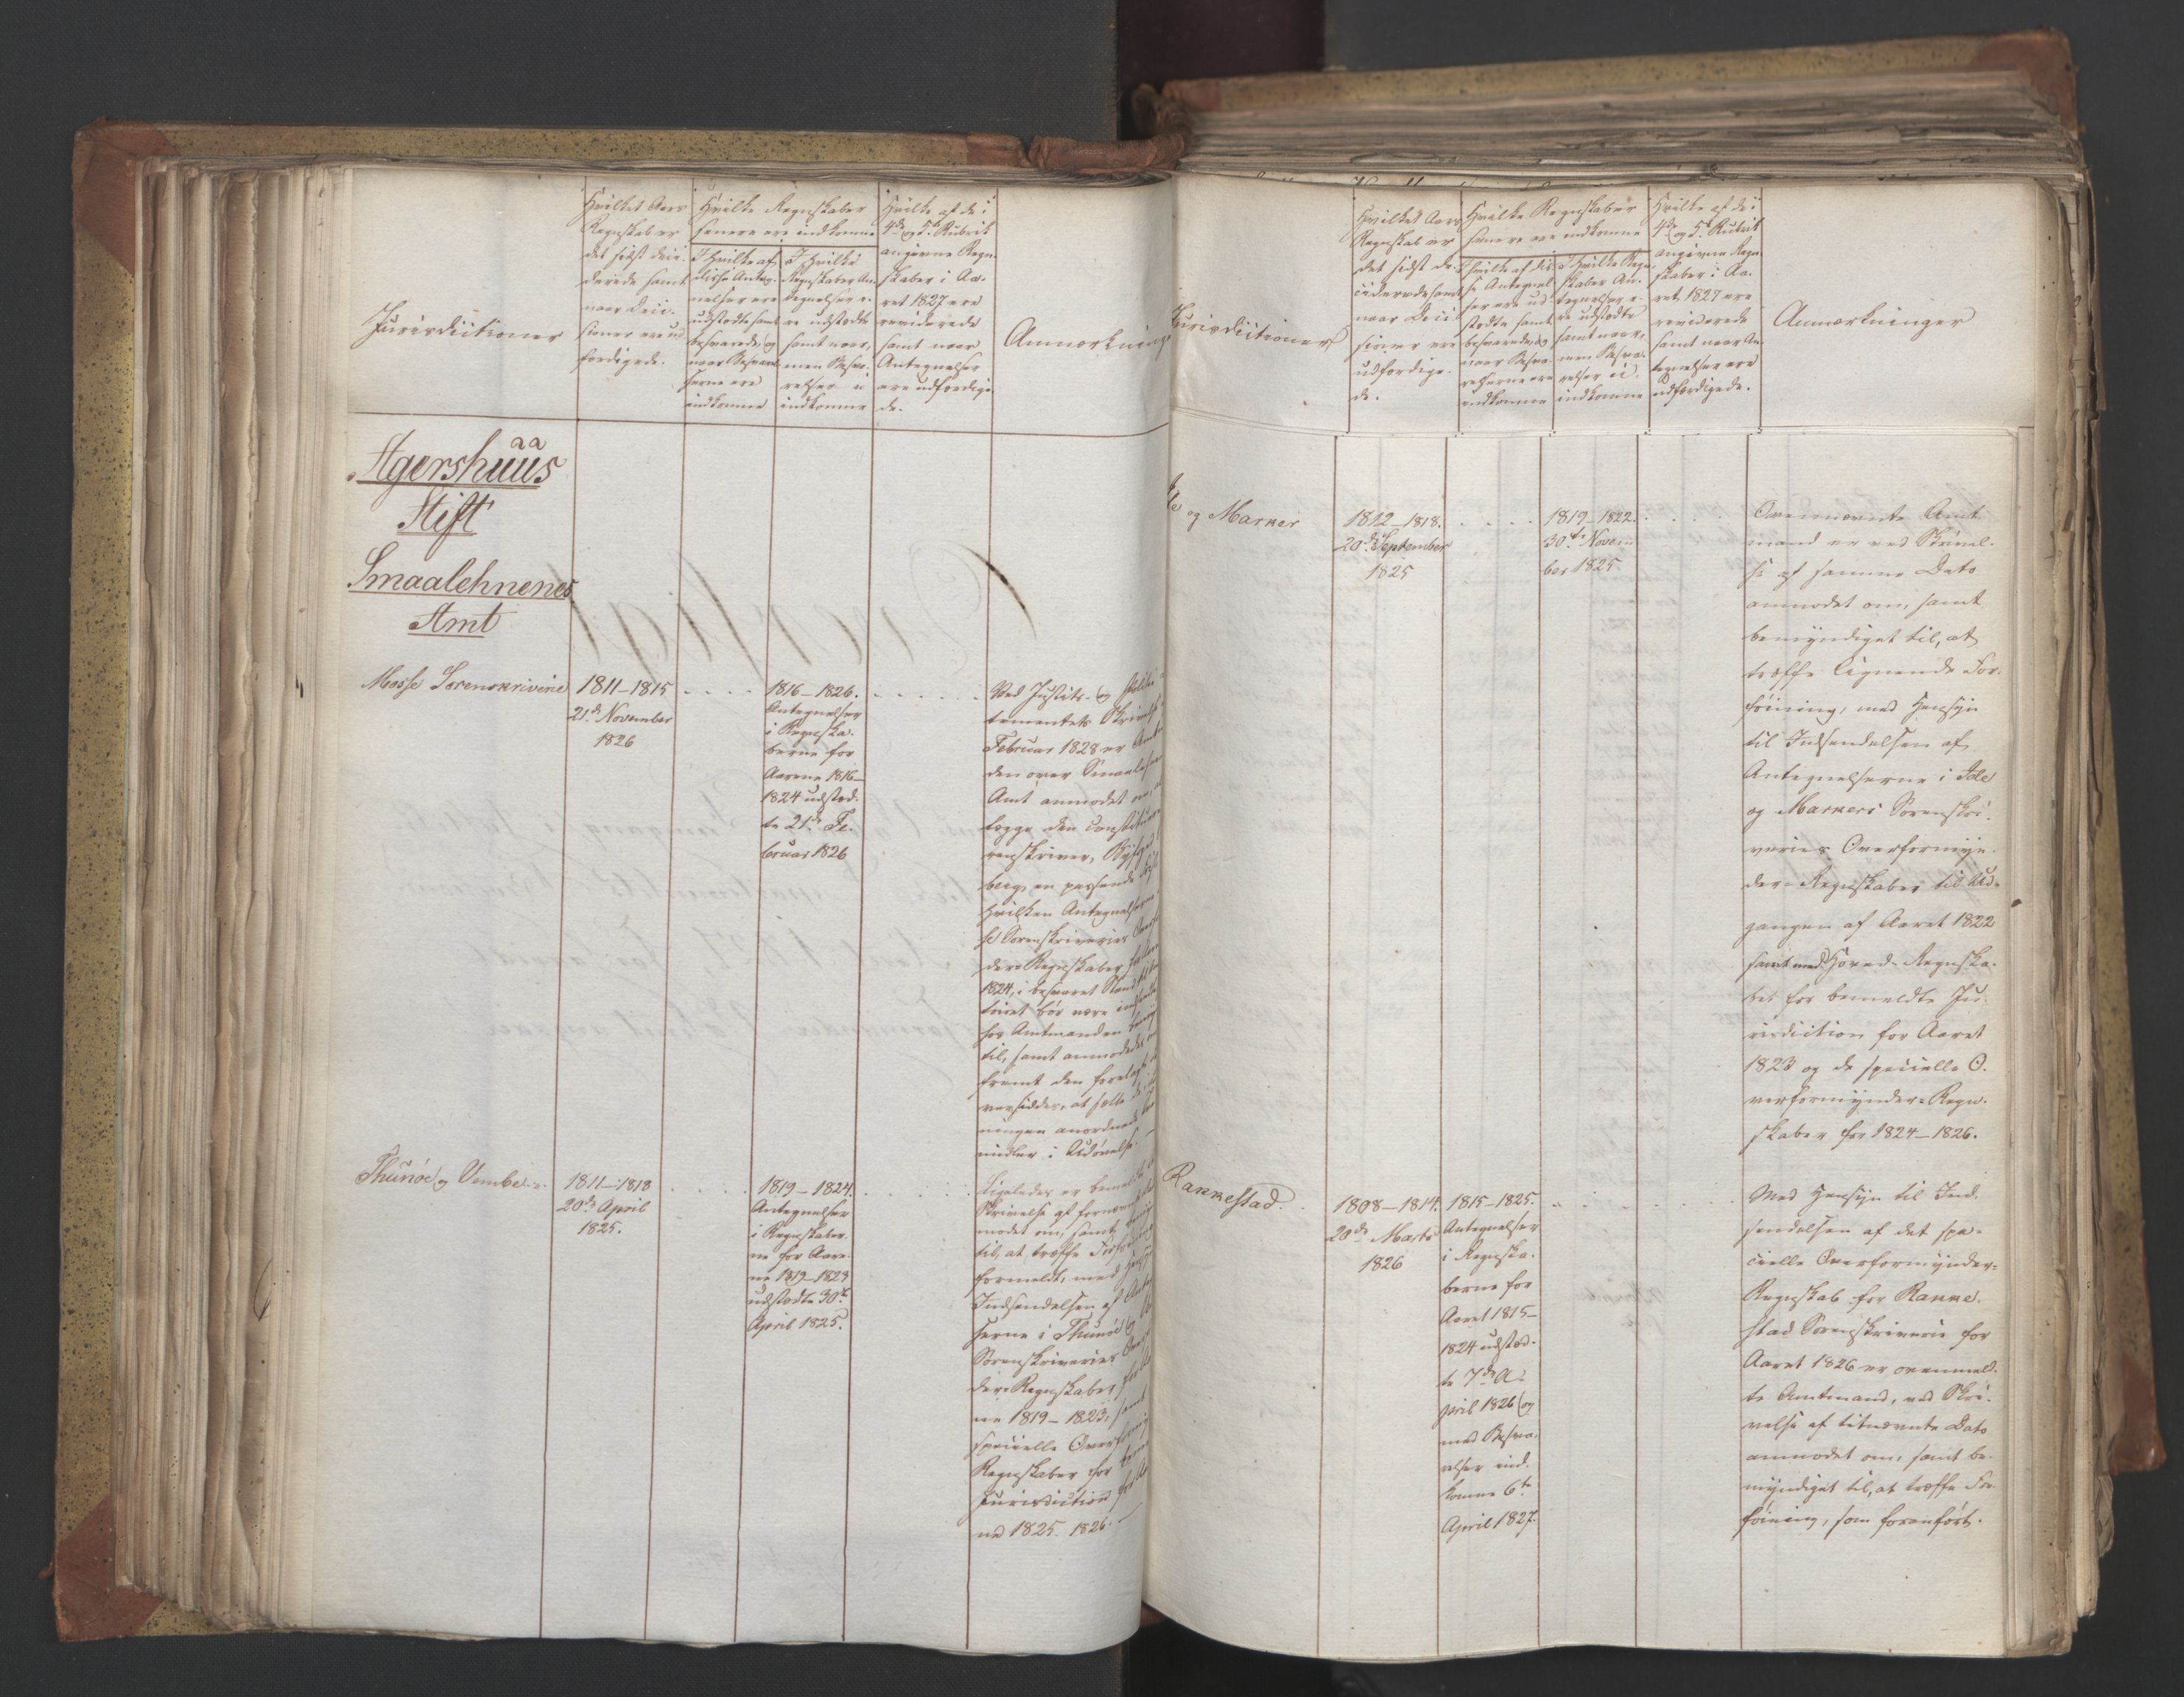 Jurisdictioner
Hvilket Aars
Regnskab er
det sidst deci-
derede samt
naar Deci-
sioner ere ud
færdigede.
Hvilke Regnskaber
senere ere indkomne
I Hvilke af
disse Anteg-
nelser ere
udstædte samt
besvarede, og
naar Besvarel
serne ere
indkomne
I Hvilke
Regnskaber An-
tegnelser e-
re udstædte
samt naar,
men Besva-
relser ei
indkomne
Hvilke af de i
4de og 5te Rubrik
angivne Regn-
skaber i Aa-
ret 1827 ere
reviderede
samt naar
Antegnelser
ere udfærdige-
de.
Anmærkninger
Agershuus
Stift
Smaalehnenes
Amt
Mosse Sorenskriverie
1811–1815
21de November
1826
1816–1826.
Antegnelser
i Regnska-
berne for
Aarene 1816–
1824 udstæd-
te 21de Fe-
bruar 1826
Ved Justits- og Politie
tementets Skrivelse
Februar 1828 er Amt
den over Smaalehnenes
Amt anmodet om,
lægge den constituerede
renskriver,
berg, en passende
hvilken Antegnelserne
se Sorenskriveries
der-Regnskaber
1824, i besvaret Stand
toiret bør være indsendte
for Amtmanden
til, samt anmodedes
fremt den forelagte
versiddes, at sætte de
ningen anordnede
midler i Udøvelse. –
Thunøe og Vembe
1811–1818
20de April
1825.
1819–1824.
Antegnelser
i Regnskaber-
ne for Aare-
ne 1819–1823
udstædte 30te
April 1825.
Ligeledes er bemeldte
Skrivelse af fornævnte
modet om, samt
til, at træffe Forføining
formeldt, med Hensyn
Indsendelsen af
serne i Thunøe og
Sorenskriveries
der-Regnskaber
ne 1819–1823, samt
specielle
Regnskaber for
Jurisdiction
ne 1825–1826. –
Jurisdictioner
Hvilket Aars
Regnskab er
det sidst de-
ciderede samt
naar Deci
sioner ere
udfærdige-
de.
Hvilke Regnskaber
senere ere indkomne
I Hvilke af dis
se Antegnel
ser ere ud
stædte samt
besvarede, og
naar Besva-
relserne ere
indkomne
I Hvilke Regn-
skaber An-
tegnelser e-
re udstædte
samt naar,
men Besva-
relser ei
indkomne
Hvilke af de i
4de og 5te Rubrik
angivne Regn-
skaber i Aa-
ret 1827 ere
reviderede
samt naar An-
tegnelser ere
udfærdigede.
Anmærkninger
og Marker
1812–1818.
20de September
1825
1819–1822.
30te Novem
ber 1825
Ovennævnte Amt
mand er ved Skrivel-
se af samme Dato
anmodet om, samt
bemyndiget til, at
træffe lignende For-
føining, med Hensyn
til Indsendelsen af
Antegnelserne i Idde
og Markers Sorenskri-
veries Overformyn-
der-Regnskaber til Ud-
gangen af Aaret 1822
samt med Hoved-Regnska-
bet for bemeldte Ju-
risdiction for Aaret
1823 og de specielle O-
verformynder-Regn-
skaber for 1824–1826.
Rakkestad.
1808–1814.
20de Marts
1826
1815–1825.
Antegnelser
i Regnska-
berne for
Aaret 1815–
1824 udstæd-
te 7de A-
pril 1826 og
med Besva-
relser ind-
komne 6te
April 1827.
Med Hensyn til Ind-
sendelsen af det spe-
cielle Overformynder-
Regnskab for Rakke-
stad Sorenskriverie for
Aaret 1826 er ovenmeld-
te Amtmand, ved Skri-
velse af benævnte Dato
anmodet om, samt be-
myndiget til, at træffe For-
føining, som foranført.